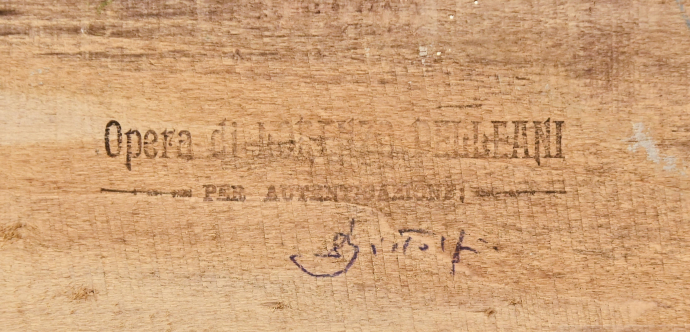 Opera di LORENZO DELLEANI
PER AUTENTICAZIONE: